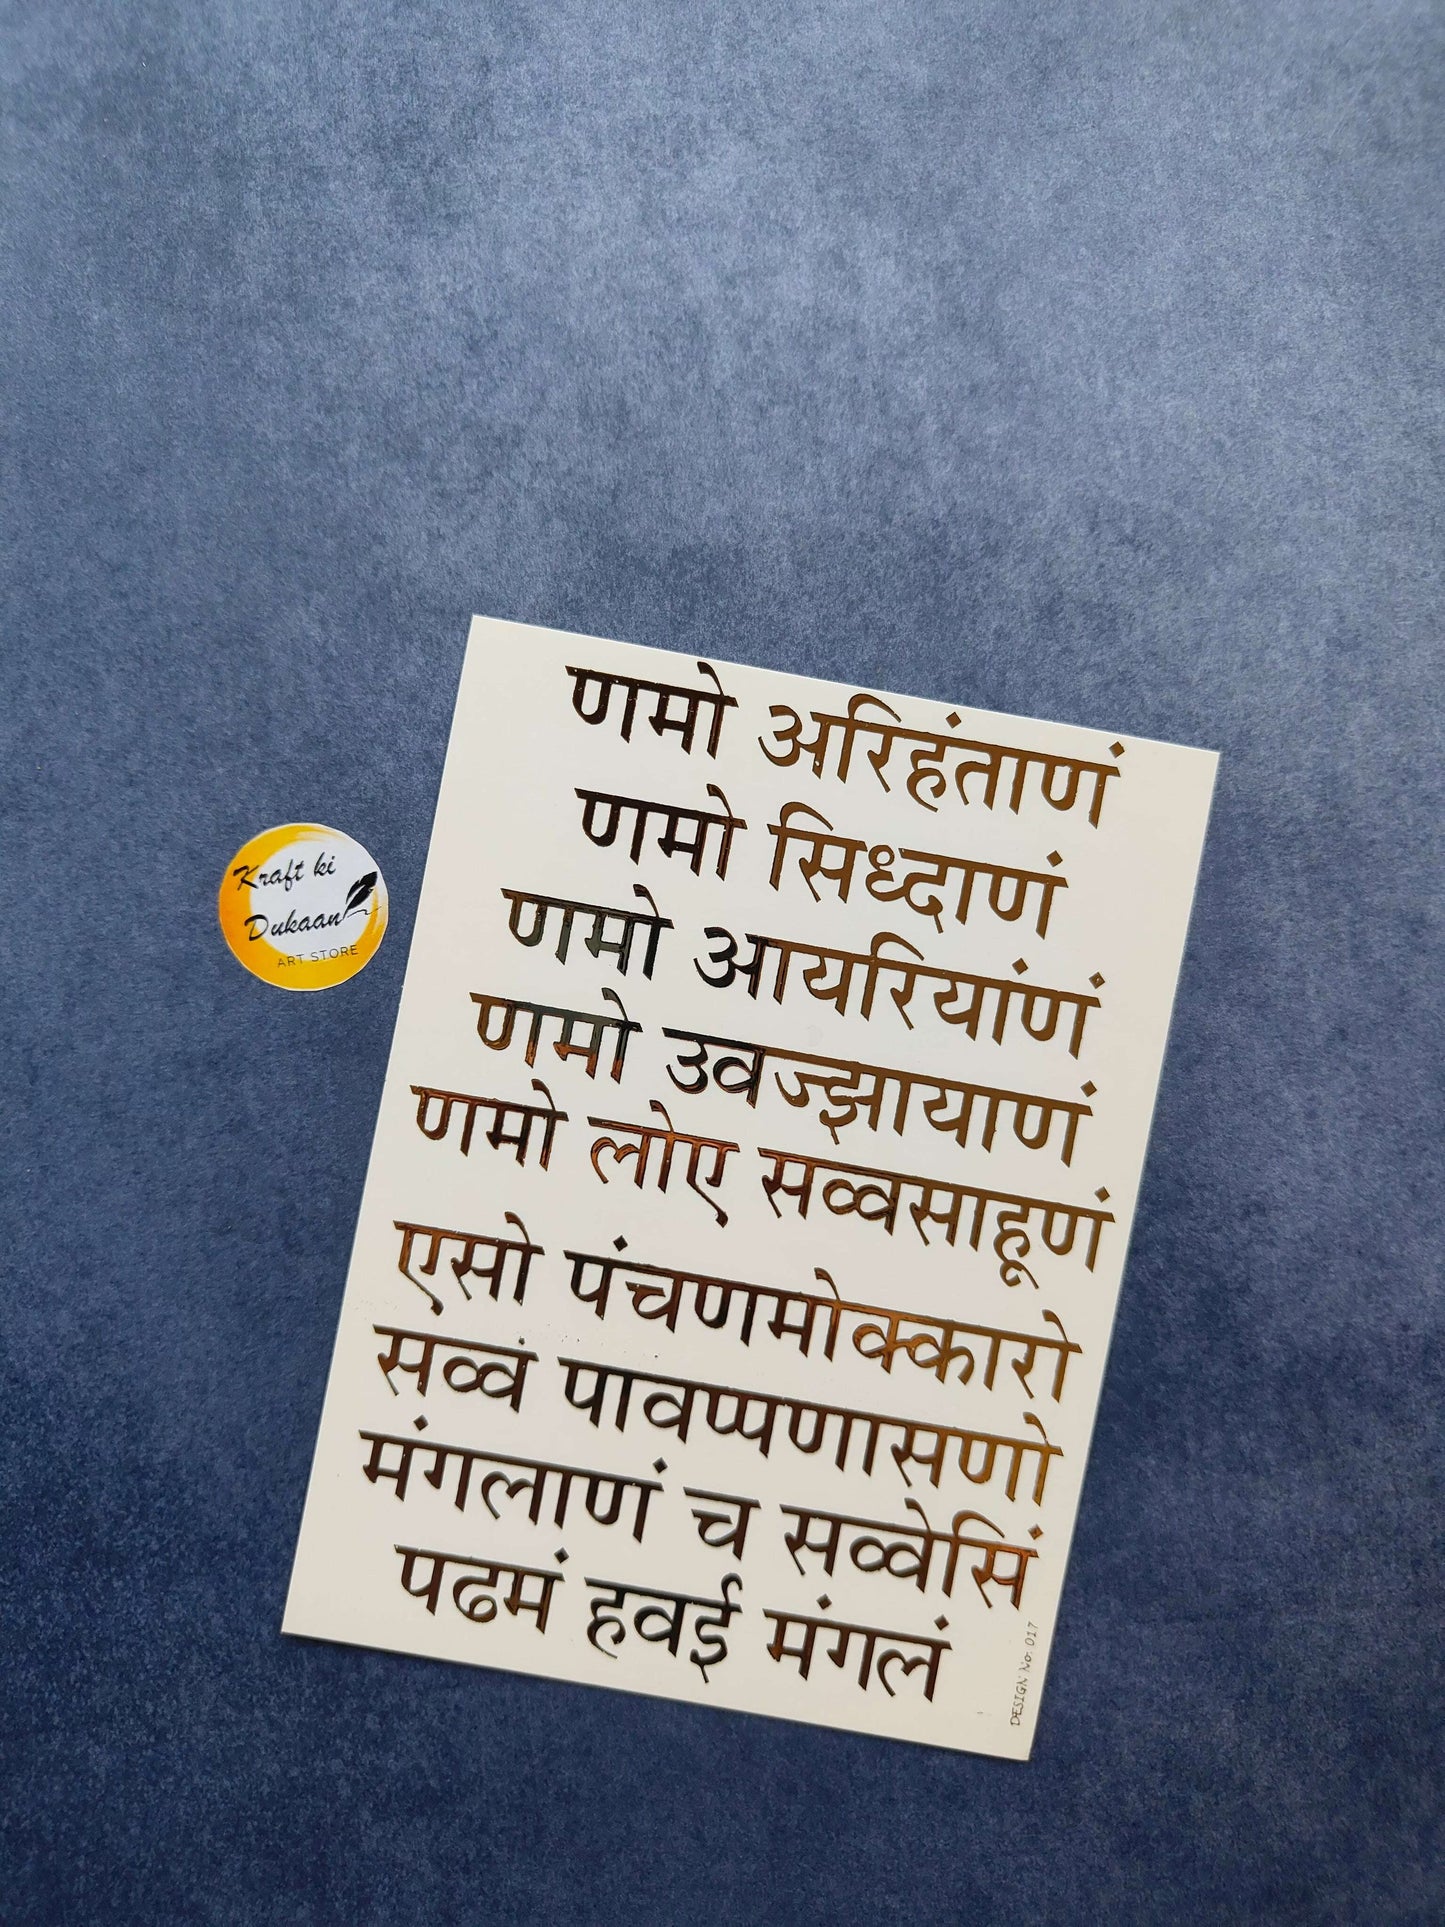 Kraft ki
Dukaan
ART STORE
णमो अरिहंताणं
णमो सिध्दाणं
णमो आयरियांणं
णमो उवज्झायाणं
णमो लोए सव्वसाहूणं
एसो पंचणमोक्कारो
सव्वं पावप्पणासणो
मंगलाणं च सव्वेसिं
पढमं हवई मंगलं
DESIGN No. 017